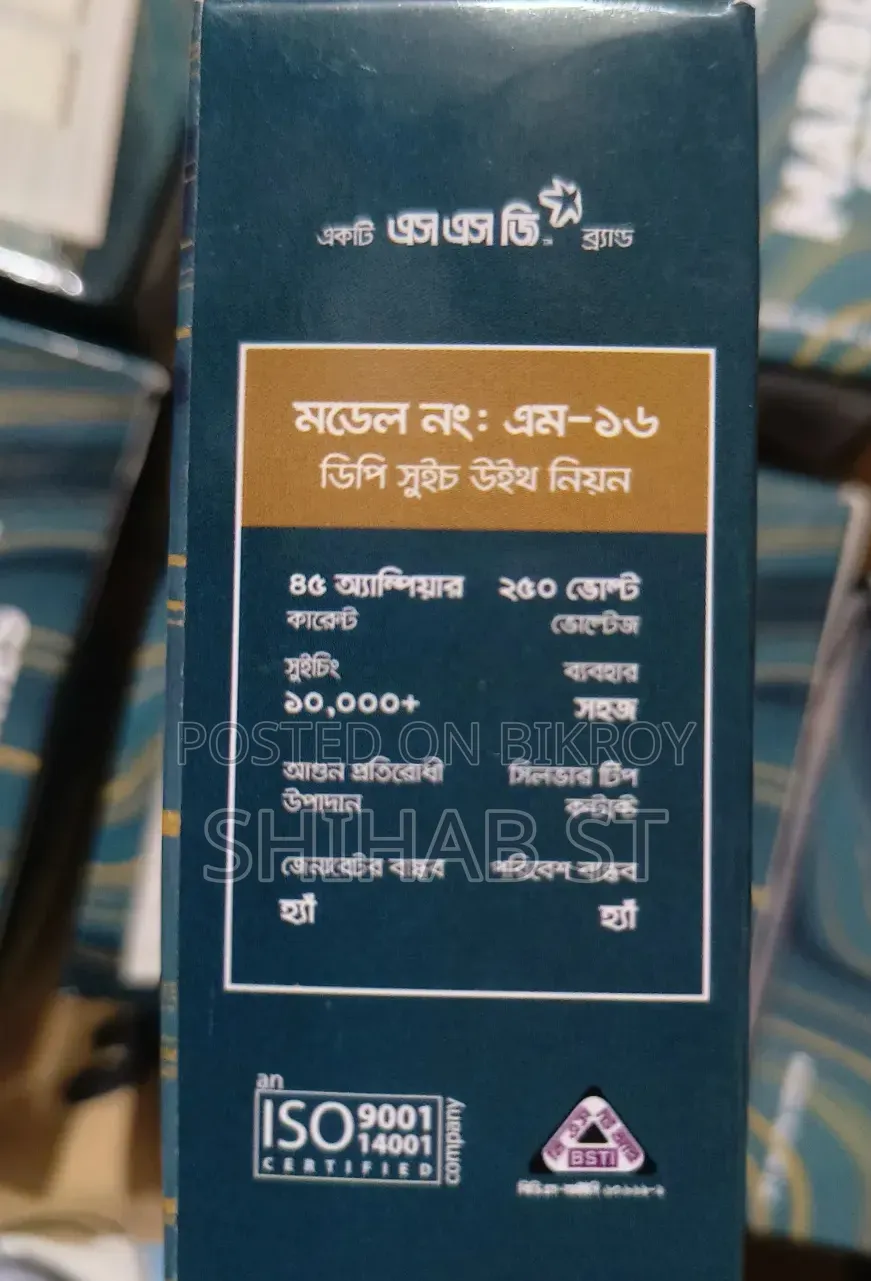 একটি এস এস জি™ ব্র্যান্ড
মডেল নং: এম-১৬
ডিপি সুইচ উইথ নিয়ন
৪৫ অ্যাম্পিয়ার ২৫০ ভোল্ট
কারেন্ট ভোল্টেজ
সুইচিং ব্যবহার
১০,০০০+ সহজ
POSTED ON BIKROY
আগুন প্রতিরোধী সিলভার টিপ
উপাদান কন্টাক্ট
SHIHAB ST
জেনারেটর বান্ধব পরিবেশ বান্ধব
হ্যাঁ হ্যাঁ
an
ISO 9001
14001
CERTIFIED
company
বি এস টি আই
BSTI